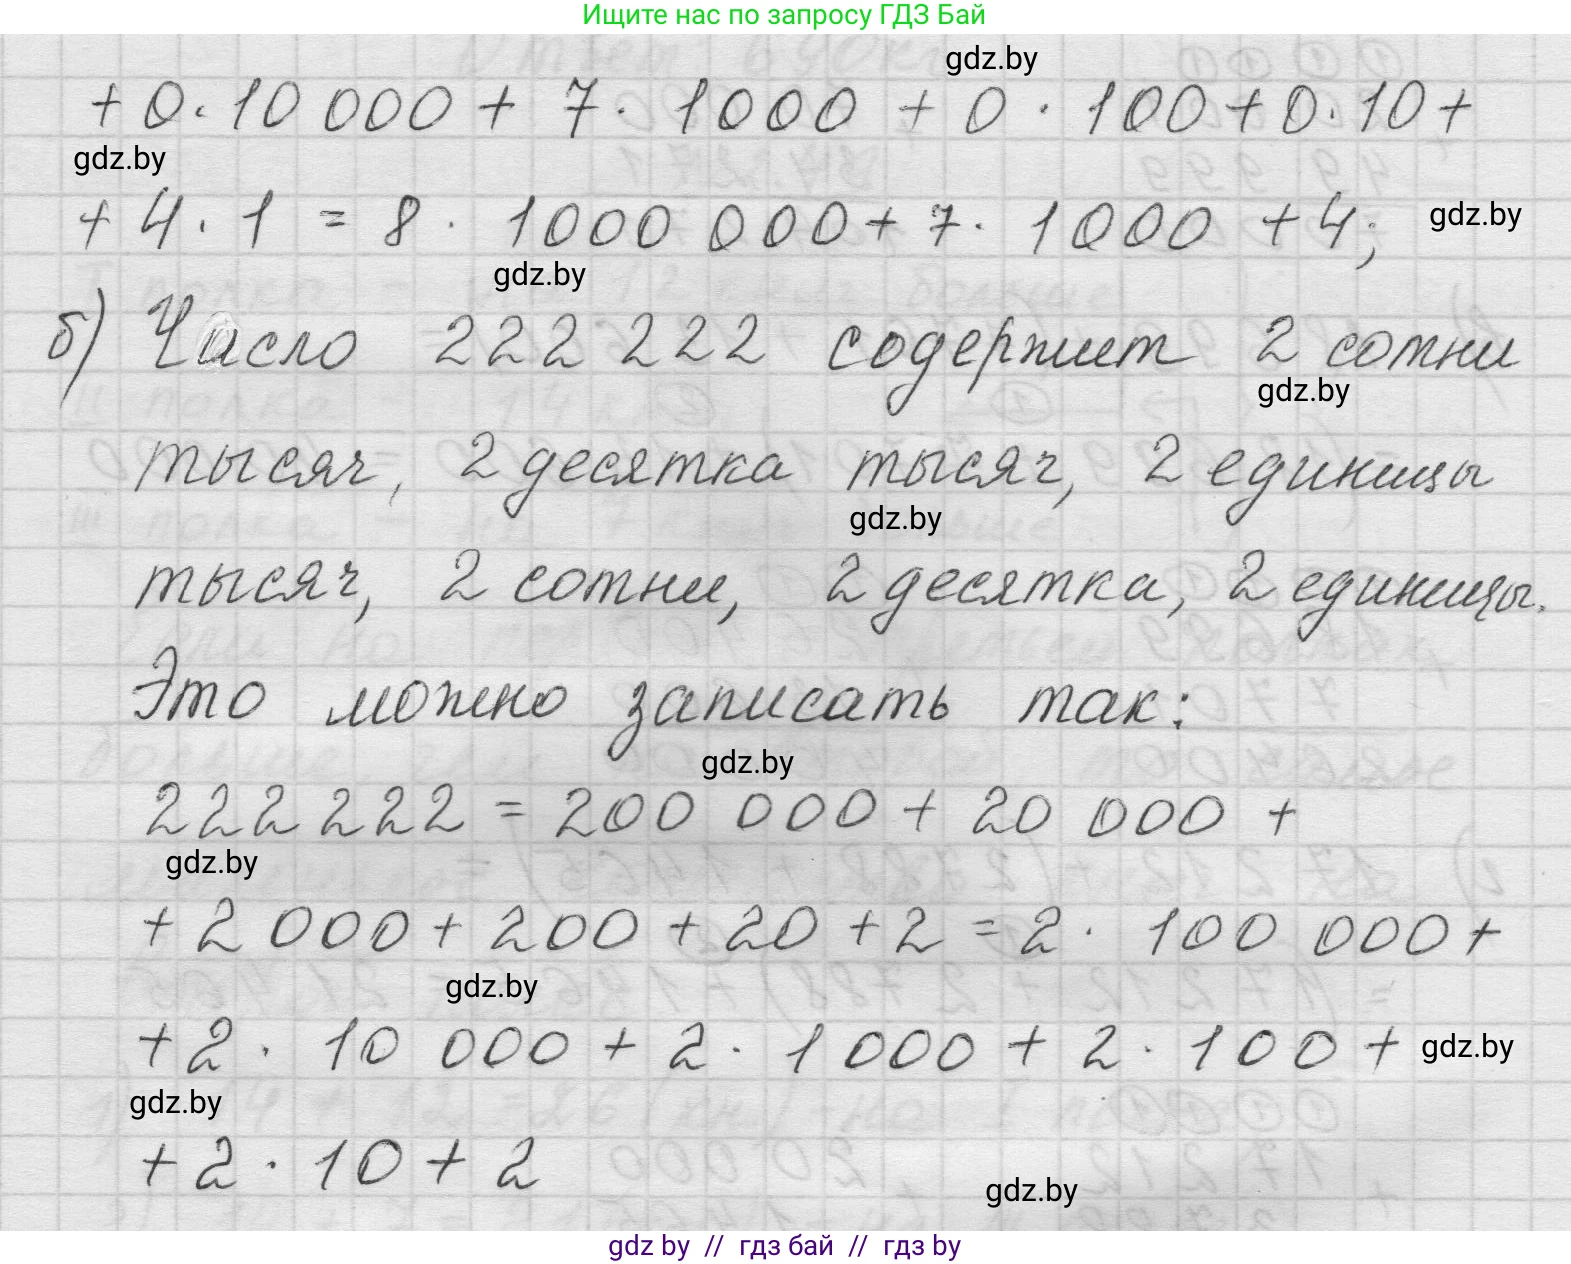 Ищите нас по запросу ГДЗ Бай
gdz.by
+ 0 · 10 000 + 7 · 1000 + 0 · 100 + 0 · 10 +
gdz.by
+ 4 · 1 = 8 · 1000 000 + 7 · 1000 + 4;
gdz.by
gdz.by
б) Число 222 222 содержит 2 сотни
gdz.by
тысяч, 2 десятка тысяч, 2 единицы
gdz.by
тысяч, 2 сотни, 2 десятка, 2 единицы.
Это можно записать так:
gdz.by
222 222 = 200 000 + 20 000 +
gdz.by
+ 2 000 + 200 + 20 + 2 = 2 · 100 000 +
gdz.by
+ 2 · 10 000 + 2 · 1 000 + 2 · 100 +
gdz.by
gdz.by
+ 2 · 10 + 2
gdz.by
gdz by // гдз бай // гдз by